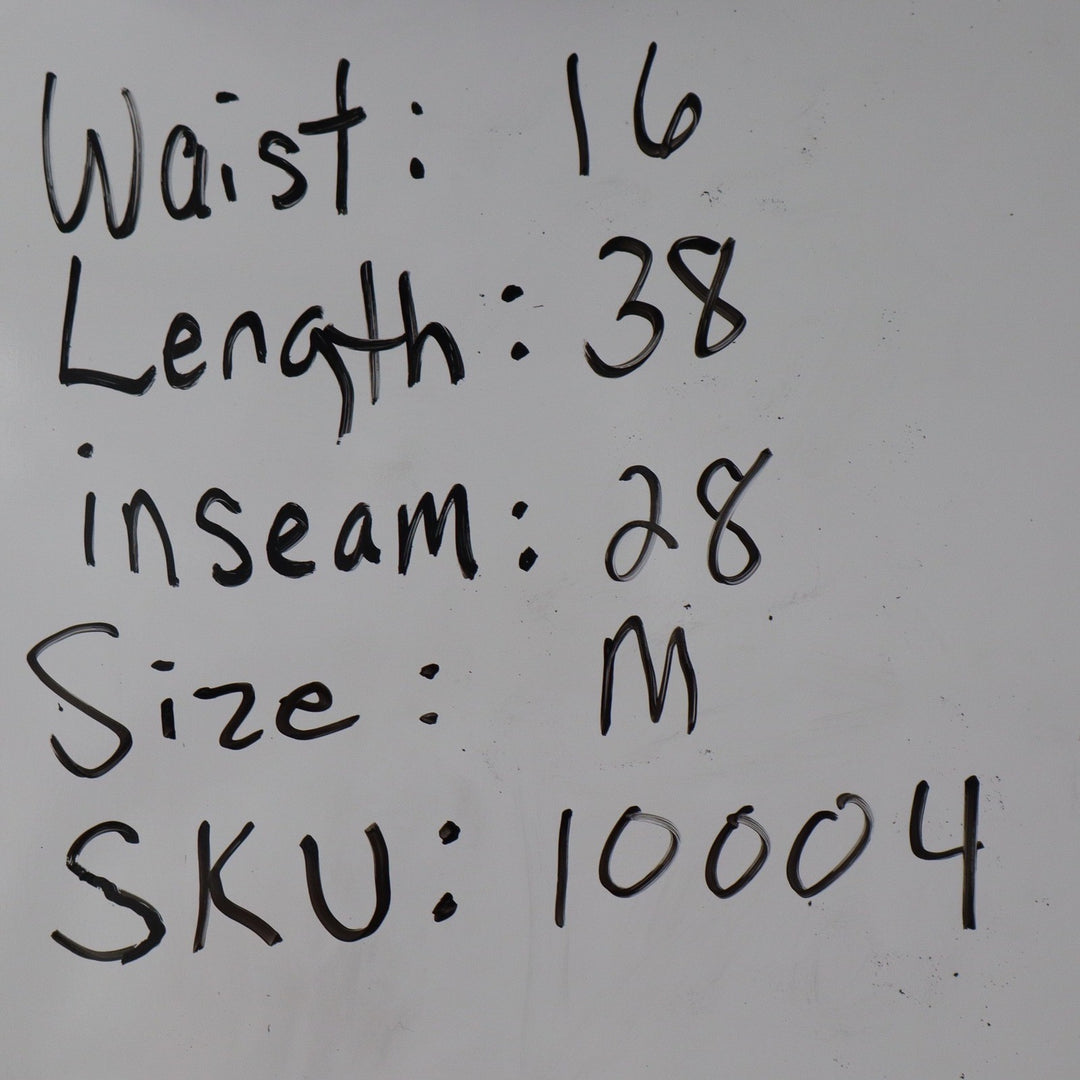 Waist: 16
Length: 38
inseam: 28
Size: M
SKU: 10004